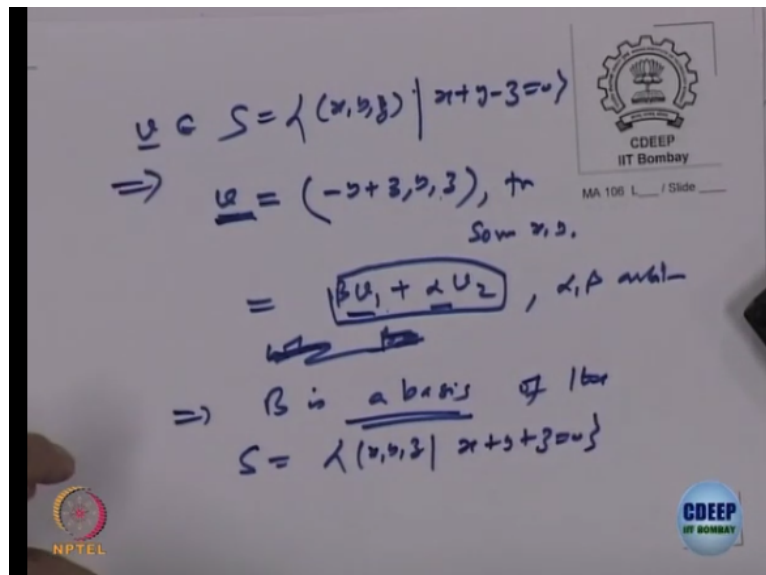 v ∈ S = {(x, y, z) | x+y-z=0}
CDEEP
IIT Bombay
MA 106 L___ / Slide ___
⇒ v = (-y+z, y, z), for
some x, y.
= βv₁ + αv₂, α, β
⇒ B is a basis of
S = {(x, y, z) | x+y+z=0}
NPTEL
CDEEP
IIT BOMBAY